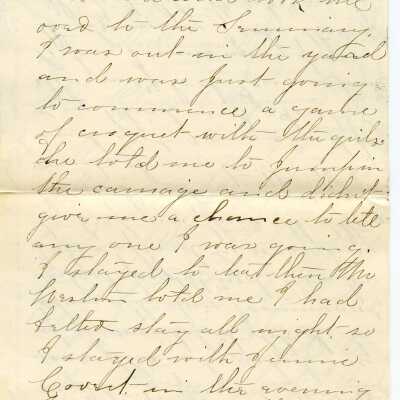 over to the Seminary.
I was out in the yard
and was just going
to commence a game
of croquet with the girls
He told me to jump in
the carriage and didn't
give me a chance to tell
any one I was going.
I stayed to tea then Mr
told me I had
better stay all night so
I stayed with Jennie
Covert. in the evening